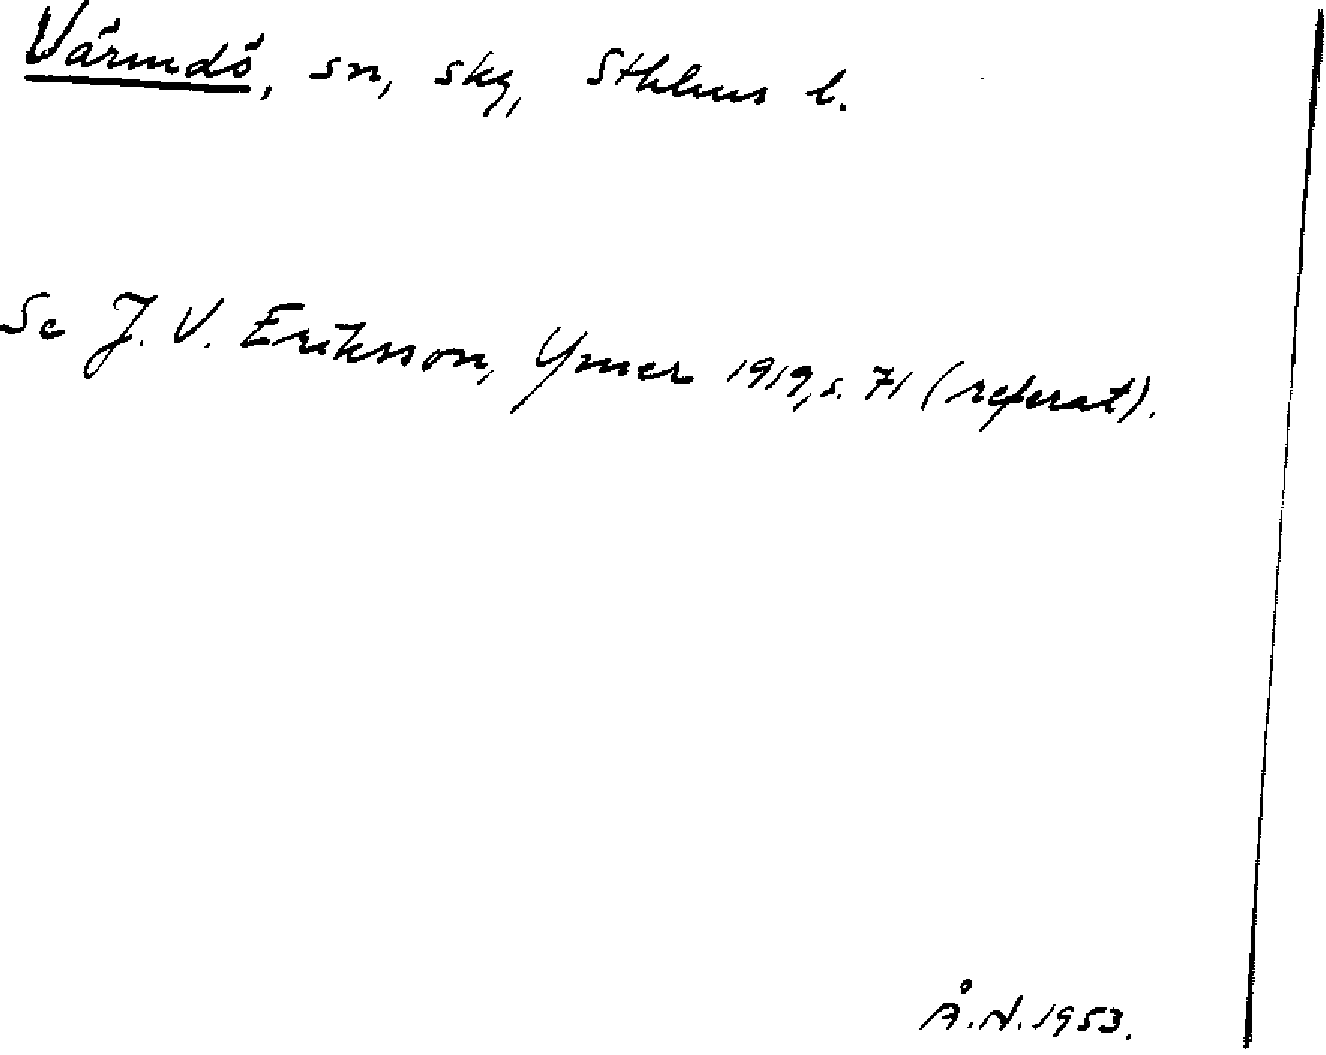 Värmdö, sn, skg, Sthlms l.
Se J. V. Eriksson, Ymer 1919, s. 71 (referat).
Å. N. 1953.